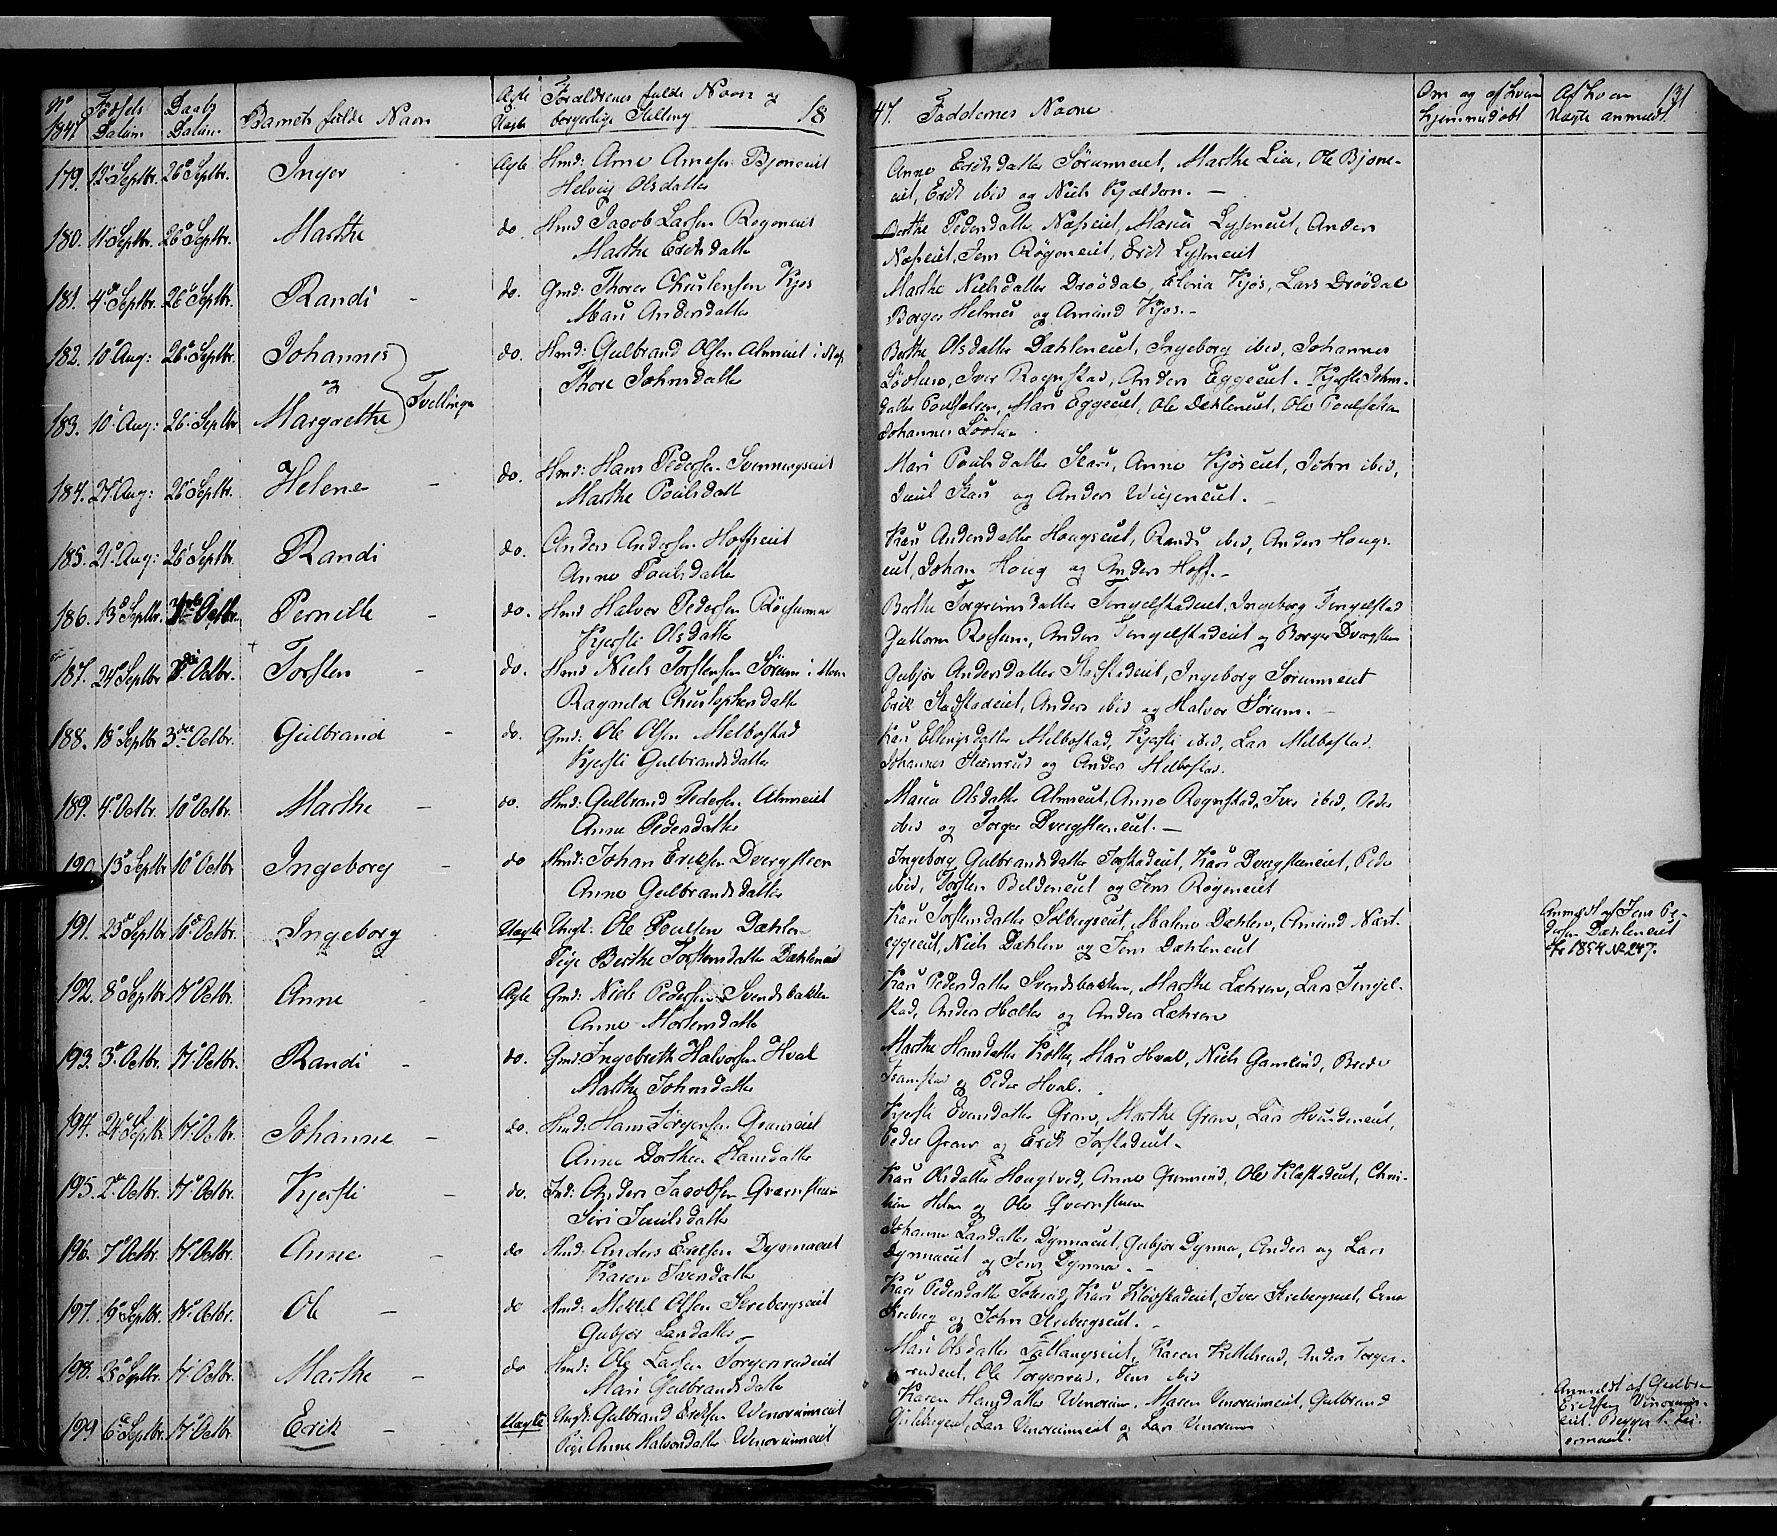 No 1847. Fødsels Datum Daabs Datum Barnets fulde Navn Ægte Uægte Forældrenes fulde Navn og borgerlige Stilling 18
47. Faddernes Navne Om og af hvem hjemmedøbt Af hvem Uægte anmeldt 131
179. 12 Septbr. 26 Septbr. Inger Ægte Hmd: Arne Arnesen Bjoneeiet
Helvig Olsdatter
Anne Eriksdatter Sørumeiet, Marthe Lia, Ole Bjone-
eiet, Erik ibid og Niels Kjælderen. –
180. 11 Septbr. 26 Septbr. Marthe do. Hmd Jacob Larsen Røgeneiet
Marthe Eriksdatter
Berthe Pedersdatter Næseiet, Maria Lyseneiet, Anders
Næseiet, Jens Røgeneiet, Erik Lyseneiet
181. 4de Septbr. 26 Septbr. Randi do. Gmd: Thorer Christensen Kjos
Mari Andersdatter
Marthe Nielsdatter Drøvdal, Maria Kjos, Lars Drøvdal
Borger Helmei og Amund Kjos. –
182. 10 Aug: 26 Septbr. Johannes do. Hmd: Gulbrand Olsen Almeiet i
og Tvillinger Thore Johnsdatter
183. 10 Aug: 26 Septbr Margrethe
Berthe Olsdatter Dæhleneiet, Ingeborg ibid, Johannes
Løvlien, Iver Rognstad, Anders Eggeeiet. Kjersti Johns-
datter, Mari Eggeeiet, Ole Dæhleneiet, Ole
Johannes Løvlien
184. 24 Aug: 26 Septbr. Helene do. Hmd: Hans Pedersen Svenningseiet
Marthe Poulsdatter
Mari Poulsdatter Skari, Anne Kjoseiet, John ibid,
Iniel Skari og Anders
185. 21 Aug: 26 Septbr Randi do. Anders Andersen Hoffseiet
Anne Poulsdatter
Kari Andersdatter Hougseiet, Randi ibid, Anders Hougs-
eiet, Johan Houg og Anders Hoff. –
186. 13 Septbr. Octbr. Pernille do. Hmd Halvor Pedersen Røisumeie
Kjersti Olsdatter
Berthe Torgrimsdatter Tingelstadeiet, Ingeborg Tingelstad
Guttorm Røisum, Anders Tingelstadeiet og Borger Dvergsten
187. 24 Septbr Octbr. Torsten do. Hmd Niels Torstensen Sørum i
Ragnild Christophersdatter
Gubjør Andersdatter Stadstadeiet, Ingeborg Sørumeiet
Erik Stadstadeiet, Anders ibid og Halvor Sørum. –
188. 18 Septbr 3die Octbr. Gulbrand do. Gmd: Ole Olsen Melbostad
Kjersti Gulbrandsdatter
Kari Ellingsdatter Melbostad, Kjersti ibid, Lars Melbostad.
Johannes Stenrud og Anders Melbostad.
189. 4 Octbr. 10 Octbr. Marthe do. Hmd: Gulbrand Pedersen Almeiet
Anne Pedersdatter
Maria Olsdatter Almeiet, Anne Rognstad, Iver ibid, Peder
ibid og Torger Dvergsteneiet. –
190 13 Septbr 10 Octbr. Ingeborg do Hmd: Johan Eriksen Dvergsteen
Anne Gulbrandsdatter
Ingeborg Gulbrandsdatter Torstadeiet, Kari Dvergsteneiet, Peder
ibid, Torsten Beldeneiet og Jens Røgeneiet
191. 23 Septbr 10 Octbr. Ingeborg Uægte Ungk: Ole Poulsen Dæhlen
Pige Berthe Torstensdatter Dæhleneiet
Kari Torstensdatter Solbergseiet, Malene Dæhlen, Amund Nørt-
eggeeiet, Niels Dæhlen og Jens Dæhleneiet
Anmeldt af Jens Pe-
dersen Dæhleneiet
1854 No 247.
192. 8 Septbr 17 Octbr. Anne Ægte Gmd: Niels Pedersen Svendsbakken
Anne Mortensdatter
Kari Pedersdatter Svendsbakken, Marthe Læhren, Lars Tingel-
stad, Anders Holter og Anders Læhren
193. 3 Octbr. 17 Octbr. Randi do. Gmd: Ingebreth Halvorsen Hval
Marthe Johnsdatter
Marthe Hansdatter, Mari Hval, Niels Gamlund, Brede
Framstad og Peder Hval.
194. 24 Septbr 17 Octbr Johanne do. Hmd: Hans Jørgensen Graneiet
Anne Dorthea Hansdatter
Kjersti Evensdatter Gran, Marthe Gran, Lars Hvindeneiet,
Peder Gran og Erik Torstadeiet. –
195. 2 Octbr. 17 Octbr. Kjersti do. Ind: Anders Jacobsen Qvernsteen
Siri Iniilsdatter
Kari Olsdatter Hougtvedt, Anne Grinerud, Ole Klæstadeiet, Chri-
stian Helm og Ole Qvernsteen
196. 7 Octbr. 17 Octbr. Anne do Hmd: Anders Erichsen Dynnaeiet
Karen Iversdatter
Johanne Larsdatter Dynnaeiet, Gubjør Dynna, Anders og Lars
Dynnaeiet og Jens Dynna. –
197. 19 Septbr. 17 Octbr. Ole do Hmd: Mikkel Olsen Screbergseiet
Gubjør Larsdatter
Kari Pedersdatter, Kari, Iver Screbergseiet, Erna
Screberg og John Screbergseiet. –
198. 25 Septbr. 17 Octbr. Marthe do Hmd: Ole Larsen Torgersrudeiet
Mari Gulbrandsdatter
Mari Olsdatter Fallangseiet, Karen Kittelsrud, Anders Torger-
srudeiet, Ole Torgersrud, Jens ibid
199 6 Septbr. 17 Octbr. Erik Uægte Ungk: Gulbrand Eriksen Wenoreimeiet
Pige: Anne Halvorsdatter Wenoreimeiet
Karen Hansdatter Wenoreim, Maren Vinoreimeiet, Gulbrand
Lars Vinoreimeiet og Lars Vinoreim
Anmeldt af Gulbr.
Eriksen Vinoreims-
eiet. Begges 1. Lei-
ermaal.